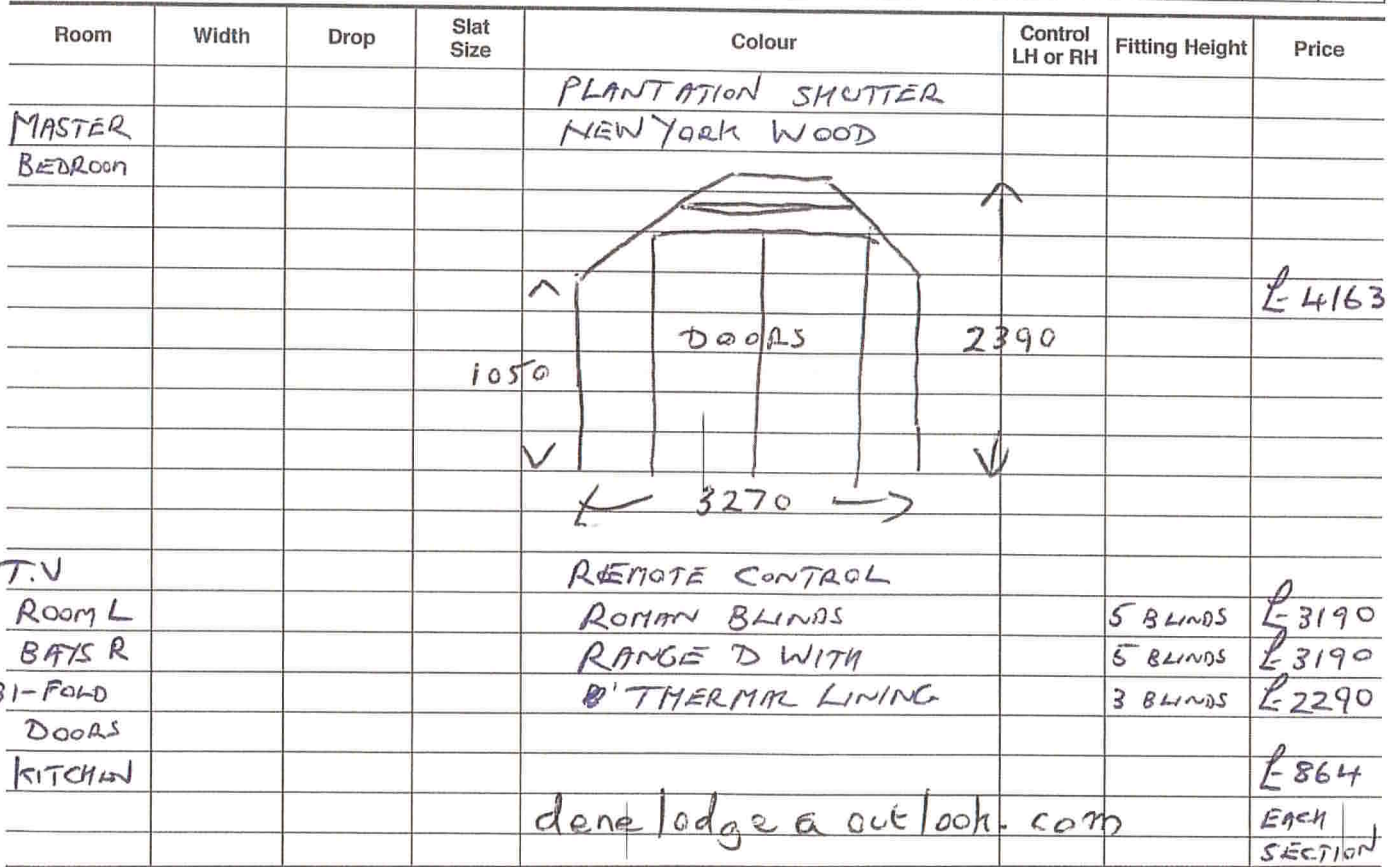 Room Width Drop Slat Size Colour Control LH or RH Fitting Height Price
PLANTATION SHUTTER
MASTER NEW YORK WOOD
BEDROOM
£4163
DOORS 2390
1050
3270
T.V REMOTE CONTROL
ROOM L ROMAN BLINDS 5 BLINDS £3190
BAYS R RANGE D WITH 5 BLINDS £3190
BI-FOLD THERMAL LINING 3 BLINDS £2290
DOORS
KITCHEN £864
denelodge@outlook.com EACH
SECTION